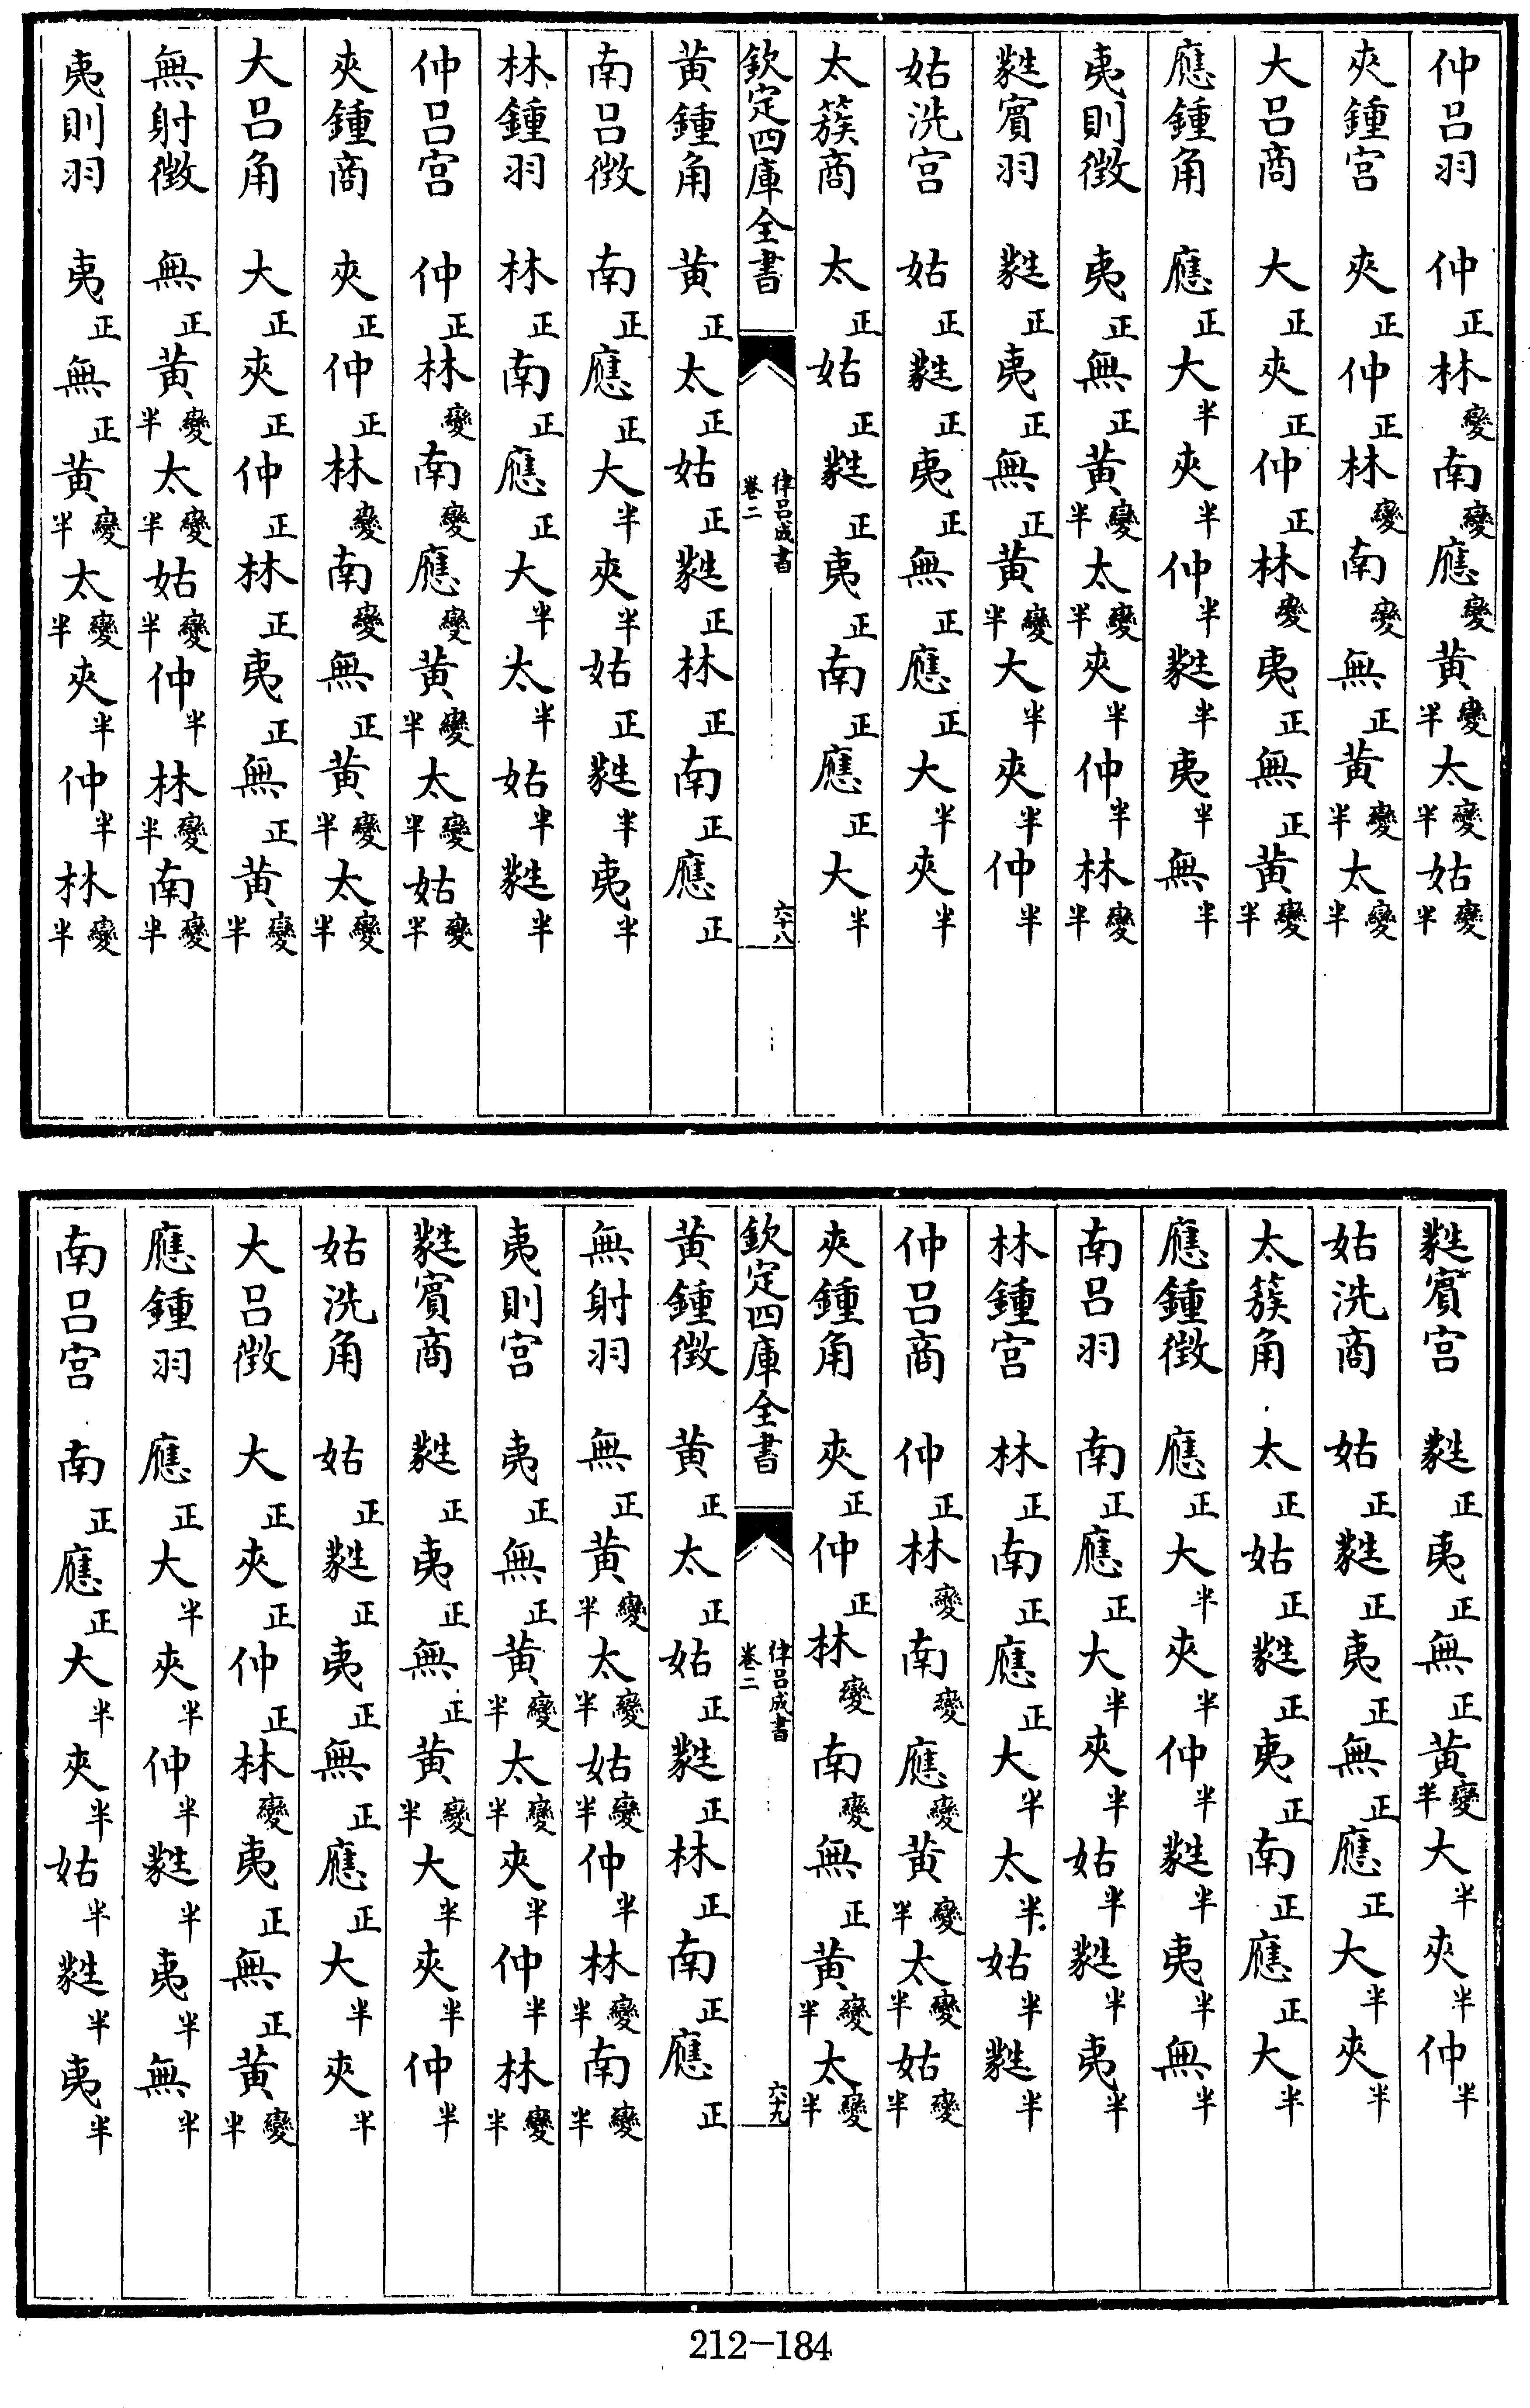 仲呂羽　仲正林變南變應變黃變半太變半姑變半
夾鍾宮　夾正仲正林變南變無正黃變半太變半
大呂商　大正夾正仲正林變夷正無正黃變半
應鍾角　應正大半夾半仲半蕤半夷半無半
夷則徵　夷正無正黃變半太變半夾半仲半林變半
蕤賓羽　蕤正夷正無正黃變半大半夾半仲半
姑洗宮　姑正蕤正夷正無正應正大半夾半
太簇商　太正姑正蕤正夷正南正應正大半
欽定四庫全書　律呂成書卷二　六十八
黃鍾角　黃正太正姑正蕤正林正南正應正
南呂徵　南正應正大半夾半姑正蕤半夷半
林鍾羽　林正南正應正大半太半姑半蕤半
仲呂宮　仲正林變南變應變黃變半太變半姑變半
夾鍾商　夾正仲正林變南變無正黃變半太變半
大呂角　大正夾正仲正林正夷正無正黃變半
無射徵　無正黃變半太變半姑變半仲半林變半南變半
夷則羽　夷正無正黃變半太變半夾半仲半林變半
蕤賓宮　蕤正夷正無正黃變半大半夾半仲半
姑洗商　姑正蕤正夷正無正應正大半夾半
太簇角　太正姑正蕤正夷正南正應正大半
應鍾徵　應正大半夾半仲半蕤半夷半無半
南呂羽　南正應正大半夾半姑半蕤半夷半
林鍾宮　林正南正應正大半太半姑半蕤半
仲呂商　仲正林變南變應變黃變半太變半姑變半
夾鍾角　夾正仲正林變南變無正黃變半太變半
欽定四庫全書　律呂成書卷二　六十九
黃鍾徵　黃正太正姑正蕤正林正南正應正
無射羽　無正黃變半太變半姑變半仲半林變半南變半
夷則宮　夷正無正黃變半太變半夾半仲半林變半
蕤賓商　蕤正夷正無正黃變半大半夾半仲半
姑洗角　姑正蕤正夷正無正應正大半夾半
大呂徵　大正夾正仲正林變夷正無正黃變半
應鍾羽　應正大半夾半仲半蕤半夷半無半
南呂宮　南正應正大半夾半姑半蕤半夷半
212-184